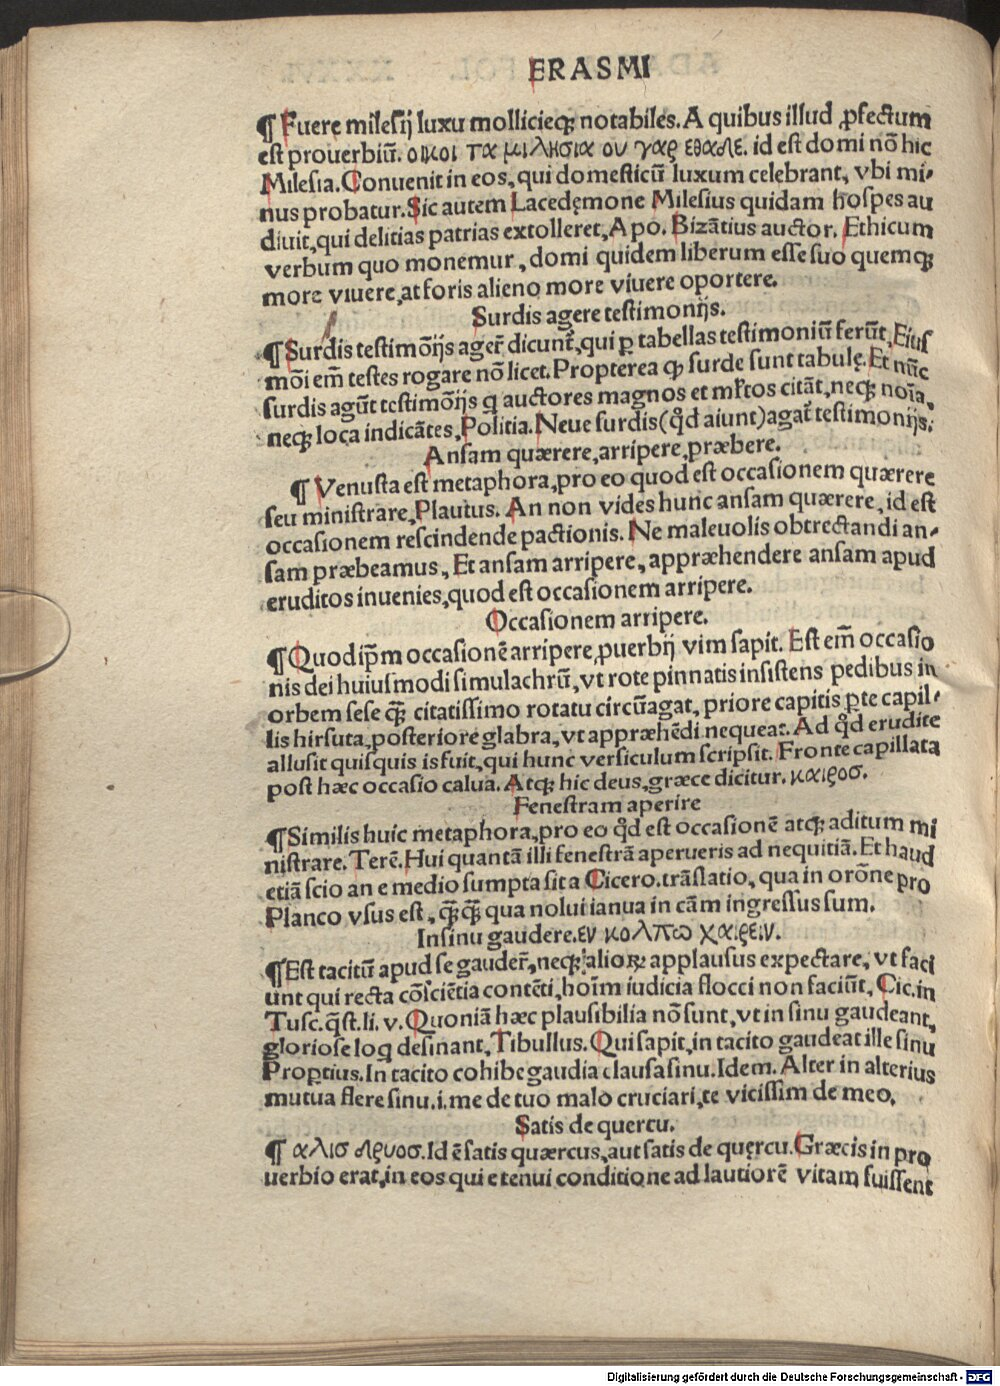 ERASMI
¶ Fuere milesij luxu mollicieq; notabiles. A quibus illud ꝓfectum
est prouerbiū. οικοι τα μιλησια ου γαρ εθαδε. id est domi nō hic
Milesia. Conuenit in eos, qui domesticū luxum celebrant, vbi mi-
nus probatur. Sic autem Lacedęmone Milesius quidam hospes au
diuit, qui delitias patrias extolleret, Apo. Bizātius auctor. Ethicum
verbum quo monemur, domi quidem liberum esse suo quemq;
more viuere, at foris alieno more viuere oportere.
Surdis agere testimonijs.
¶ Surdis testimōijs ager̄ dicunt̄, qui ꝑ tabellas testimoniū ferūt, Eius
mōi em̄ testes rogare nō licet. Propterea ꝙ surde sunt tabulę. Et nūc
surdis agūt testimōijs q auctores magnos et mr̄tos citāt, neq; noīa,
neq; loca indicātes, Politia. Neue surdis (qd̄ aiunt) agat̄ testimonijs.
Ansam quærere, arripere, præbere.
¶ Venusta est metaphora, pro eo quod est occasionem quærere
seu ministrare, Plautus. An non vides hunc ansam quærere, id est
occasionem rescindende pactionis. Ne maleuolis obtrectandi an-
sam præbeamus, Et ansam arripere, appræhendere ansam apud
eruditos inuenies, quod est occasionem arripere.
Occasionem arripere.
¶ Quod ip̄m occasionē arripere, ꝓuerbij vim sapit. Est em̄ occasio
nis dei huiusmodi simulachrū, vt rote pinnatis insistens pedibus in
orbem sese qꝫ̄ citatissimo rotatu circūagat, priore capitis ꝑte capil-
lis hirsuta, posteriore glabra, vt appræhēdi nequeat. Ad qd̄ erudite
allusit quisquis is fuit, qui hunc versiculum scripsit. Fronte capillata
post hæc occasio calua. Atq; hic deus, græce dicitur. καιροσ.
Fenestram aperire
¶ Similis huic metaphora, pro eo qd̄ est occasionē atq; aditum mi
nistrare. Terē. Hui quantā illi fenestrā aperueris ad nequitiā. Et haud
etiā scio an e medio sumpta sit a Cicero. trāslatio, qua in orōne pro
Planco vsus est, qꝫ̄qꝫ̄ qua nolui ianua in cām ingressus sum.
In sinu gaudere. εν κολπω χαιρειν.
¶ Est tacitū apud se gauder̄, neq; alioꝝ applausus expectare, vt faci
unt qui recta cōsciētia contēti, hoīm iudicia flocci non faciūt, Cic. in
Tusc. q̄st. li. v. Quoniā hæc plausibilia nō sunt, vt in sinu gaudeant,
gloriose loq desinant, Tibullus. Qui sapit, in tacito gaudeat ille sinu
Proꝑtius. In tacito cohibe gaudia clausa sinu. Idem. Alter in alterius
mutua flere sinu. i. me de tuo malo cruciari, te vicissim de meo.
Satis de quercu.
¶ αλισ δρυοσ. Id ē satis quærcus, aut satis de quęrcu. Græcis in pro
uerbio erat, in eos qui e tenui conditione ad lautiorē vitam fuissent
Digitalisierung gefördert durch die Deutsche Forschungsgemeinschaft - DFG